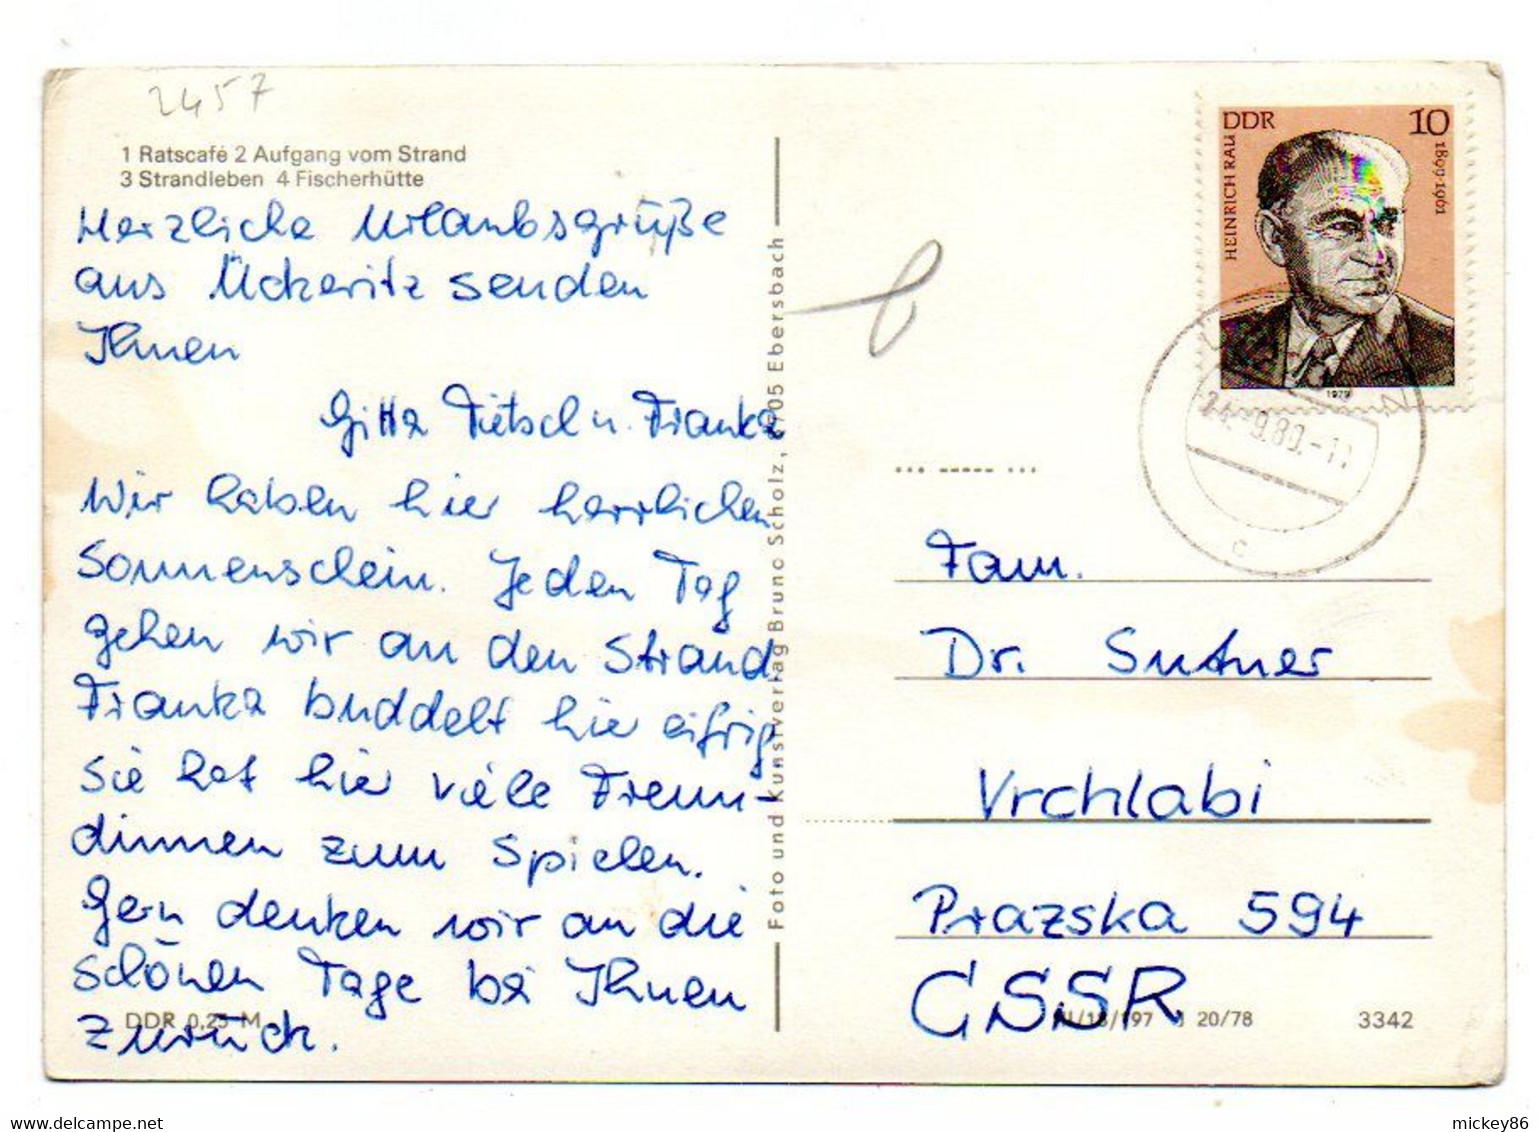 2457
1 Ratscafé 2 Aufgang vom Strand
3 Strandleben 4 Fischerhütte
Herzliche Urlaubsgrüße
aus Ückeritz senden
Ihnen
Gitta Tietsch u. Franka
Wir haben hier herrlichen
Sonnenschein. Jeden Tag
gehen wir an den Strand
Franka buddelt hier eifrig
Sie hat hier viele Freun-
dinnen zum Spielen.
Gern denken wir an die
schönen Tage bei Ihnen
zurück.
DDR 0,25 M
Foto und Kunstverlag Bruno Scholz, 8705 Ebersbach
DDR 10
HEINRICH RAU
1899-1961
1979
24.-9.80.-11
c
Fam.
Dr. Sutner
Vrchlabi
Prazska 594
CSSR
20/78
3342
mickey86
www.delcampe.net